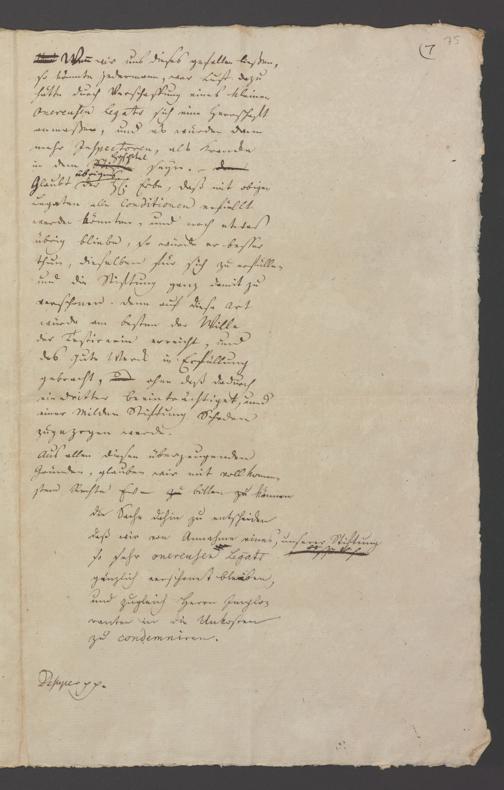 (7 75
Wenn wir uns dieses gefallen ließen,
so könnte Jedermann, wer Lust dazu
hätte durch Verschaffung eines kleinen
onereusen Legats sich eine Herrschaft
anmaßen, und es würden dann
mehr Inspectoren, als Kranke
in dem Hospital seyn. –
Glaubt übrigens der H. Erbe, daß mit obigen
Legaten alle Conditionen erfüllt
werden könnten, und noch etwas
übrig bliebe, so würde er besser
thun, dieselben für sich zu erfüllen
und die Stiftung ganz damit zu
verschonen. denn auf diese Art
würde am besten der Wille
der Testirerin erreicht, und
das gute Werk in Erfüllung
gebracht, ohne daß dadurch
ein dritter beeinträchtiget, und
einer milden Stiftung Schaden
zugezogen werde.
Aus allen diesen überzeugenden
Gründen, glauben wir mit vollkom-
stem Rechte bitten zu können
die Sache dahin zu entscheiden
daß wir von Annahme eines, unserer Stiftung
so sehr onereusen Legats
gänzlich verschonet bleiben,
und zugleich Herrn
in die Unkosten
zu condemniren.
pp.